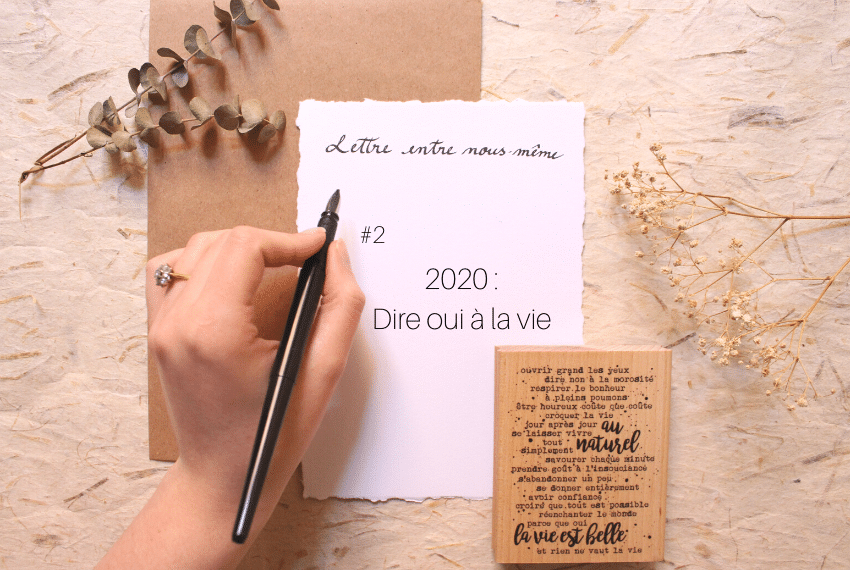 Lettre entre nous-même
#2
2020 :
Dire oui à la vie
ouvrir grand les yeux
dire non à la morosité
respirer le bonheur
à pleins poumons
être heureux coûte que coûte
croquer la vie
jour après jour au
se laisser vivre
tout naturel
simplement
savourer chaque minute
prendre goût à l'insouciance
s'abandonner un peu
se donner entièrement
avoir confiance
croire que tout est possible
réenchanter le monde
parce que oui
la vie est belle
et rien ne vaut la vie